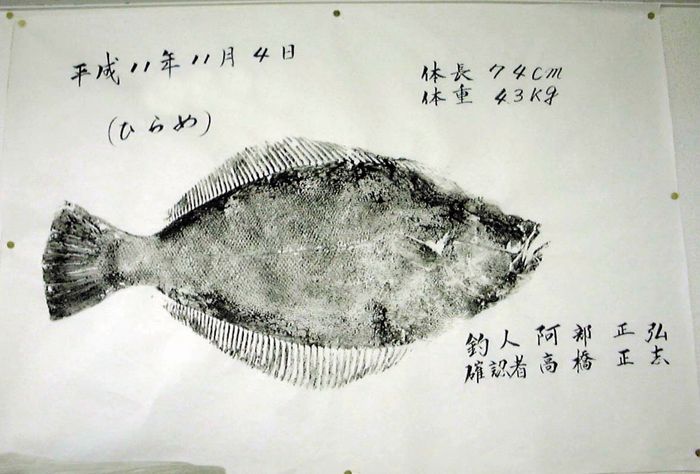 平成11年11月4日
(ひらめ)
体長 74cm
体重 43Kg
釣人 阿部 正弘
確認者 高橋 正志